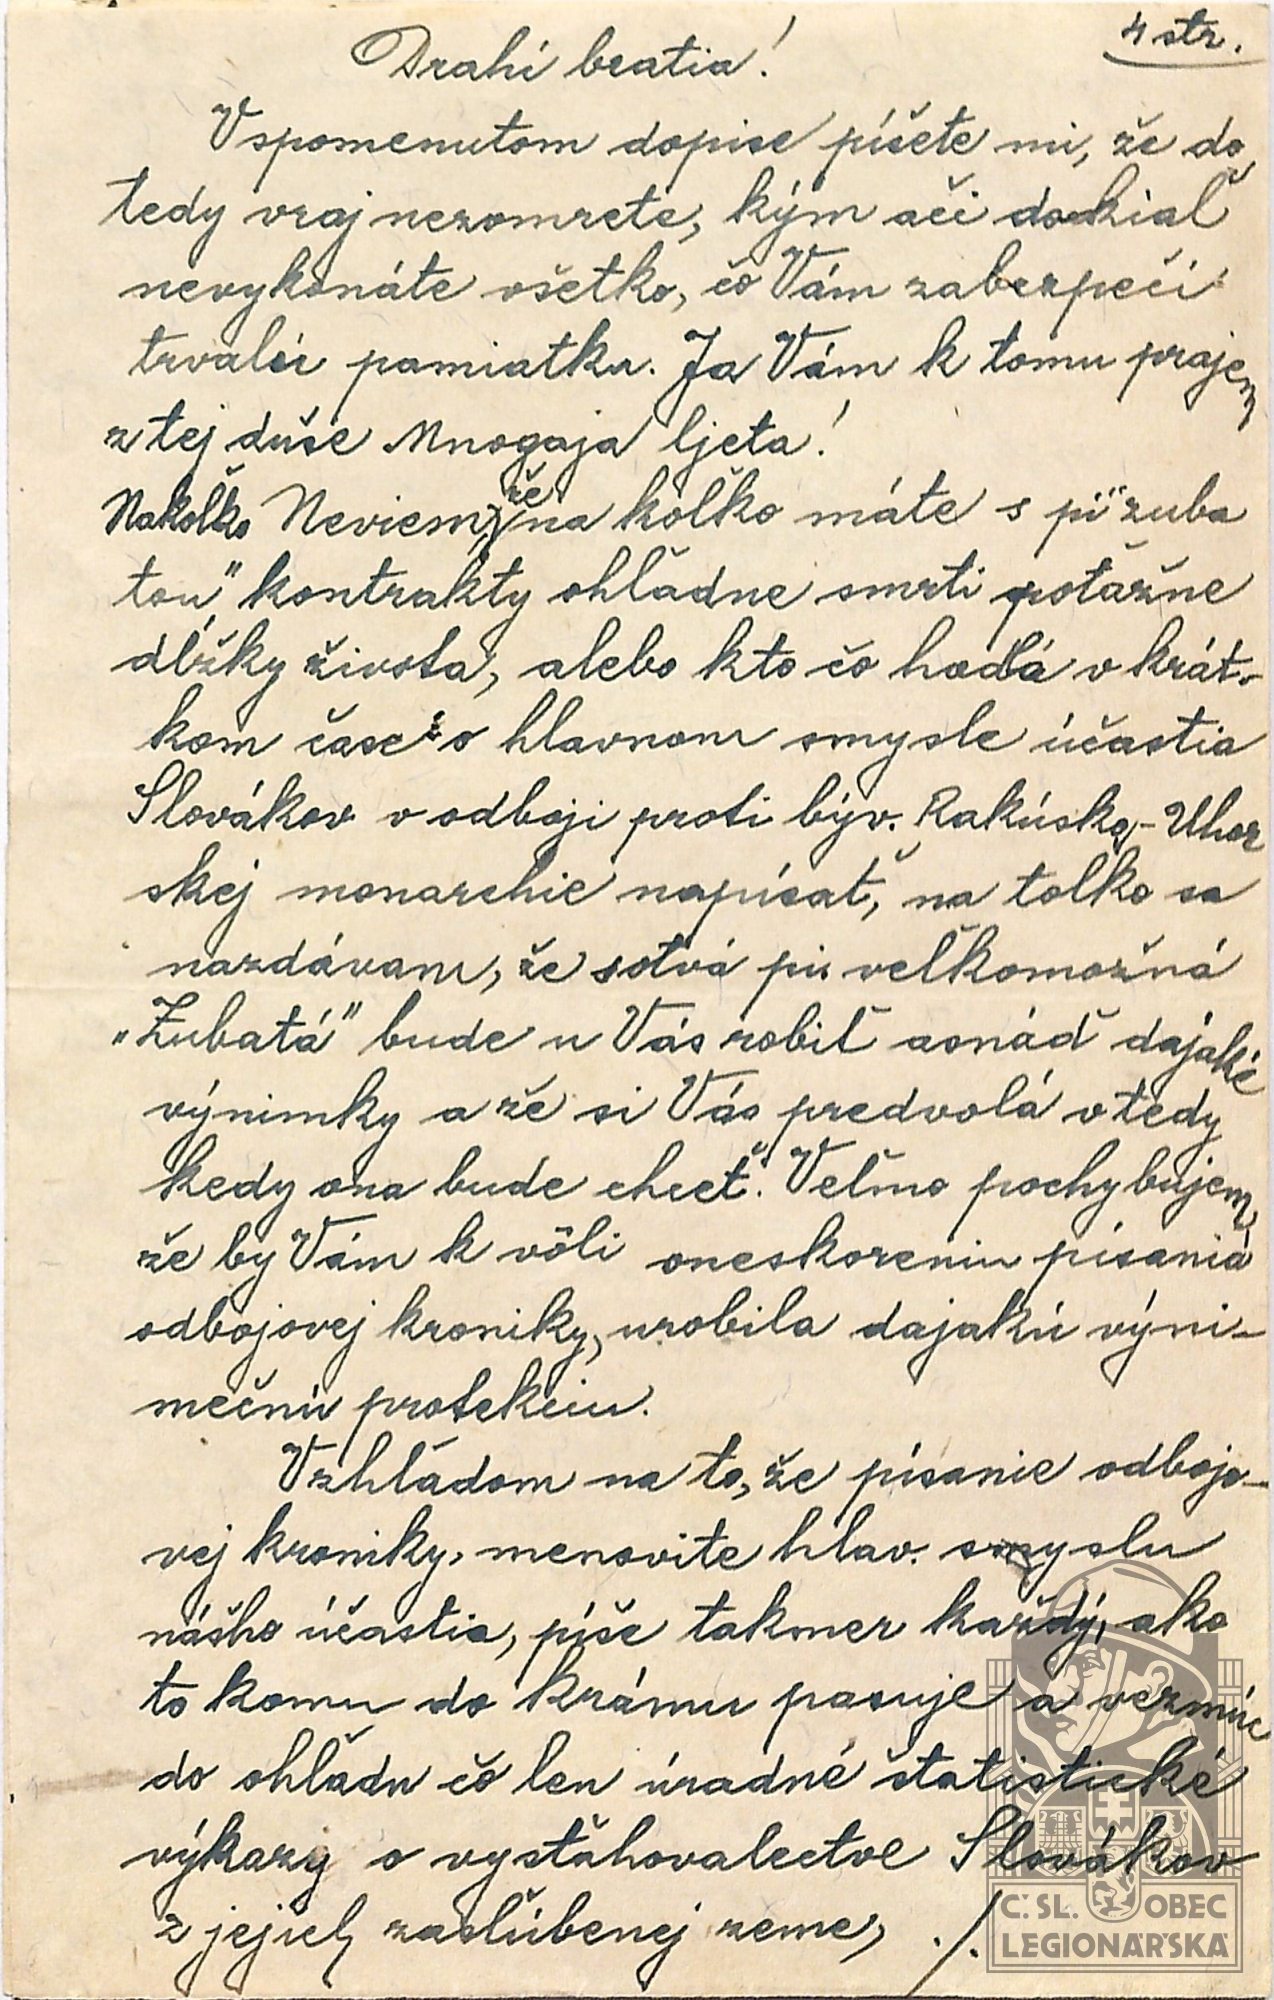 4 str.
Drahí bratia!
V spomenutom dopise píšete mi, že do
tedy vraj nezomrete, kým ači dokiaľ
nevykonáte všetko, čo Vám zabezpečí
trvalú pamiatku. Ja Vám k tomu prajem
z tej duše Mnogaja ljeta!
Nakoľko Neviem, že na koľko máte s pí „zuba
tou" kontrakty ohľadne smrti poťažne
dĺžky života, alebo kto čo hodlá v krát-
kom čase o hlavnom smysle účastia
Slovákov v odboji proti býv. Rakúsko-Uhor
skej monarchie napísať, na toľko sa
nazdávam, že sotvá pi veľkomožná
„Zubatá" bude u Vás robiť asnáď dajaké
výnimky a že si Vás predvolá vtedy
kedy ona bude chceť. Veľmo pochybujem,
že by Vám k vôli oneskoreniu písania
odbojovej kroniky, urobila dajakú výni-
mečnú protekciu.
Vzhľadom na to, že písanie odbojo-
vej kroniky, menovite hlav. smyslu
nášho účastia, píše takmer každý, ako
to komu do krámu pasuje a vezmúc
do ohľadu čo len úradné štatistické
výkazy o vysťahovalectve Slovákov
z jejich zasľúbenej zeme, ./.
Č. SL. OBEC
LEGIONÁŘSKÁ